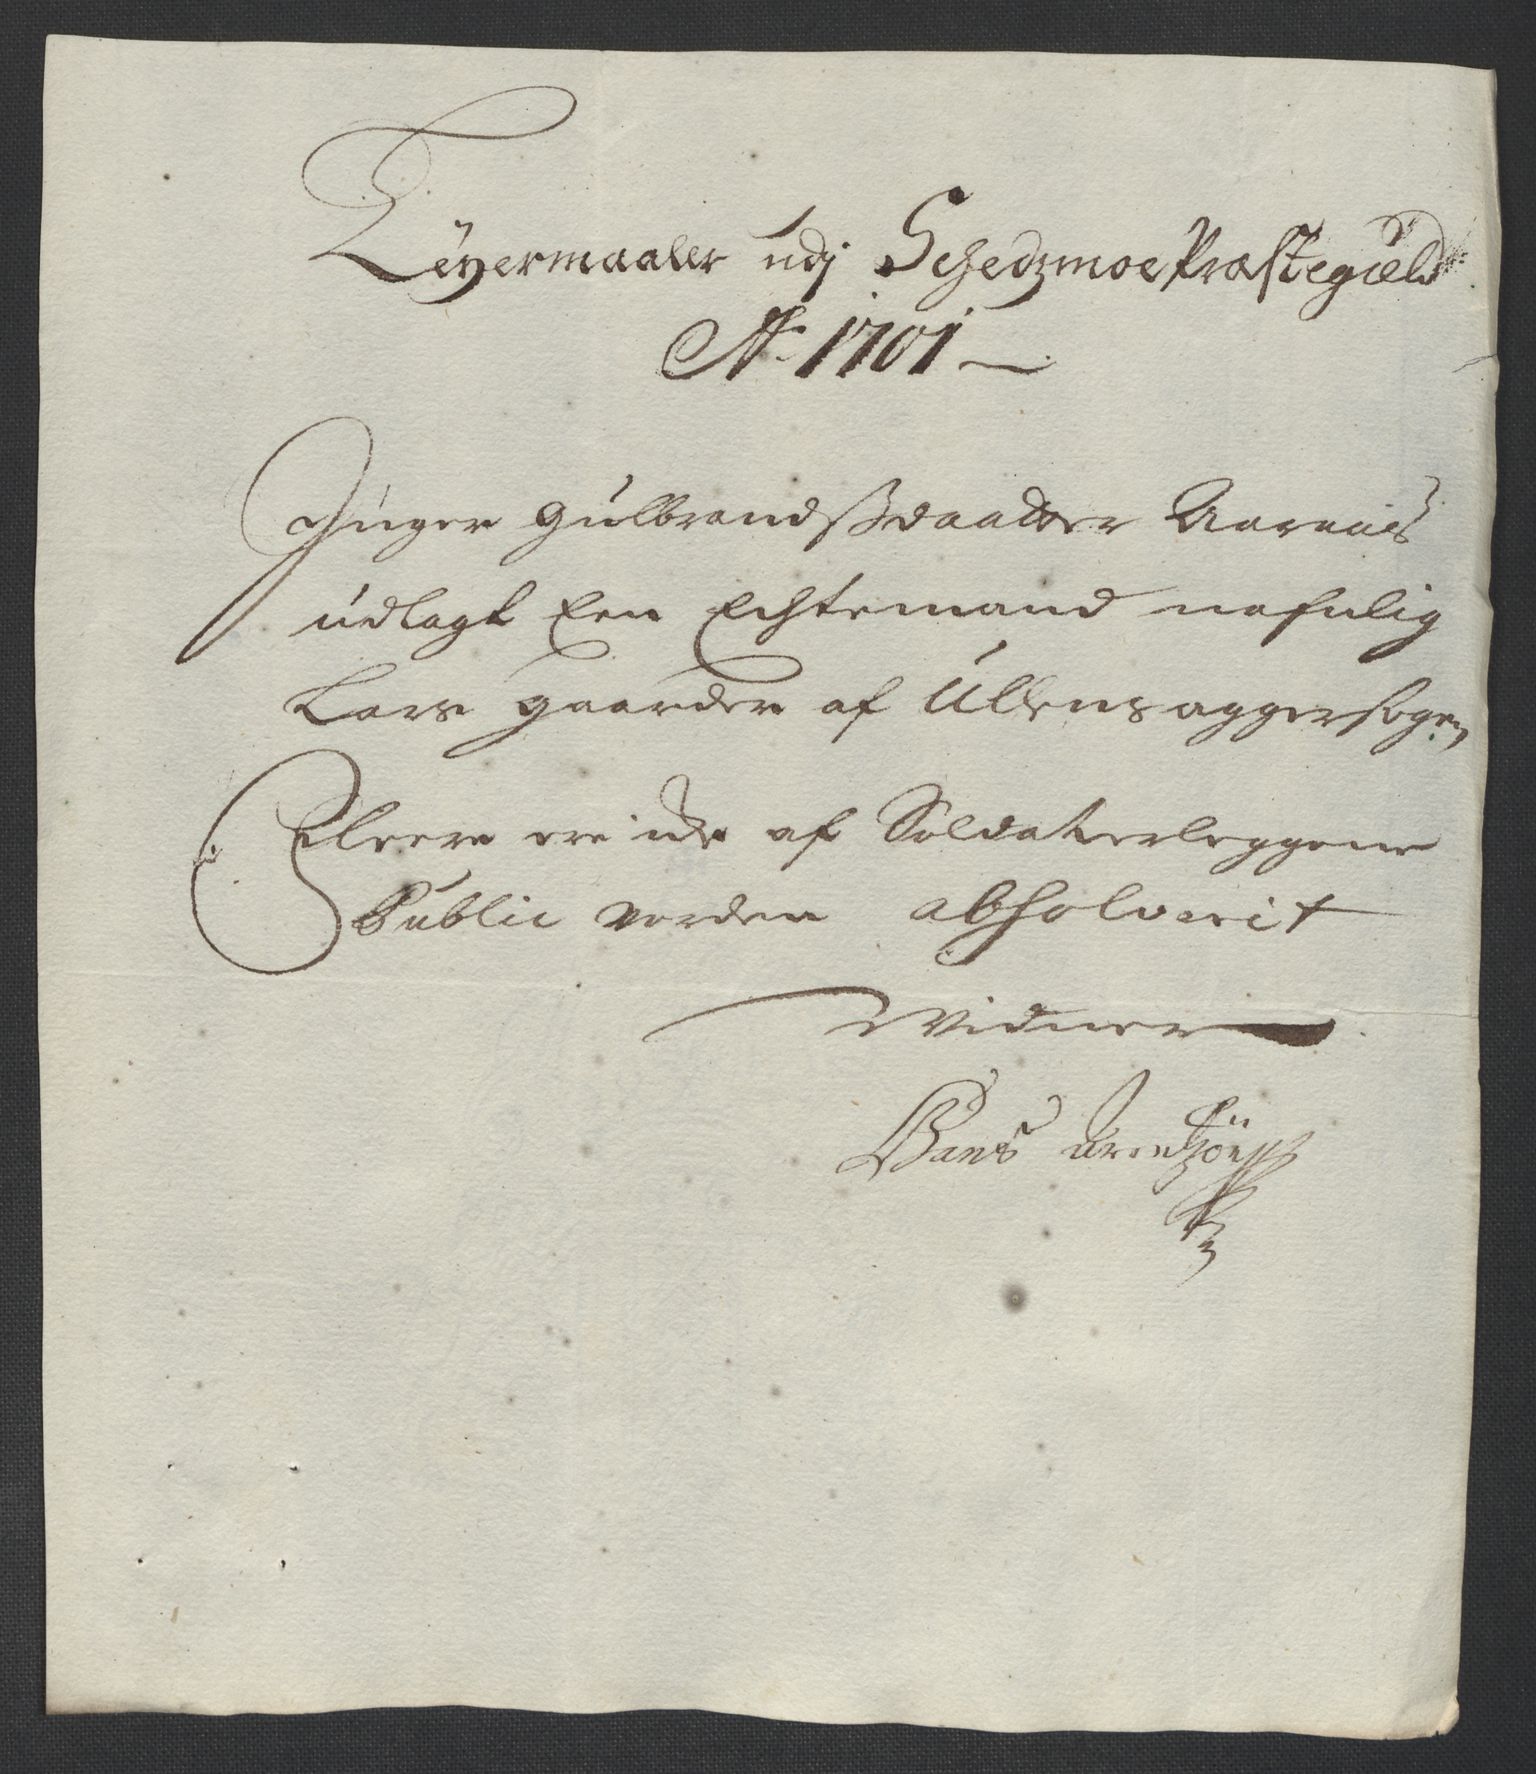 Leyermaaler udj Schedzmoe Præstegield
Ao 1701
Inger Gulbrandsdaatter Aarnæs
udlagt Een Echtemand nafnlig
Lars gaarder af Ullensaggersogen,
Fleere ere icke af Soldaterleggerne
Public vorden absolverit
Vidner
Hans